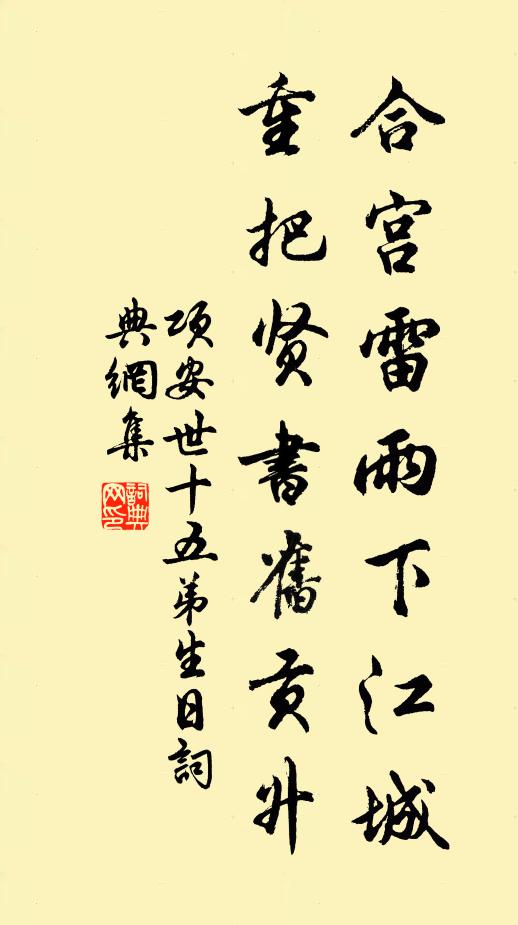 合宫雷雨下江城
重把贤書舊贡升
项安世十五弟生日詞
典網集
詞典
网印